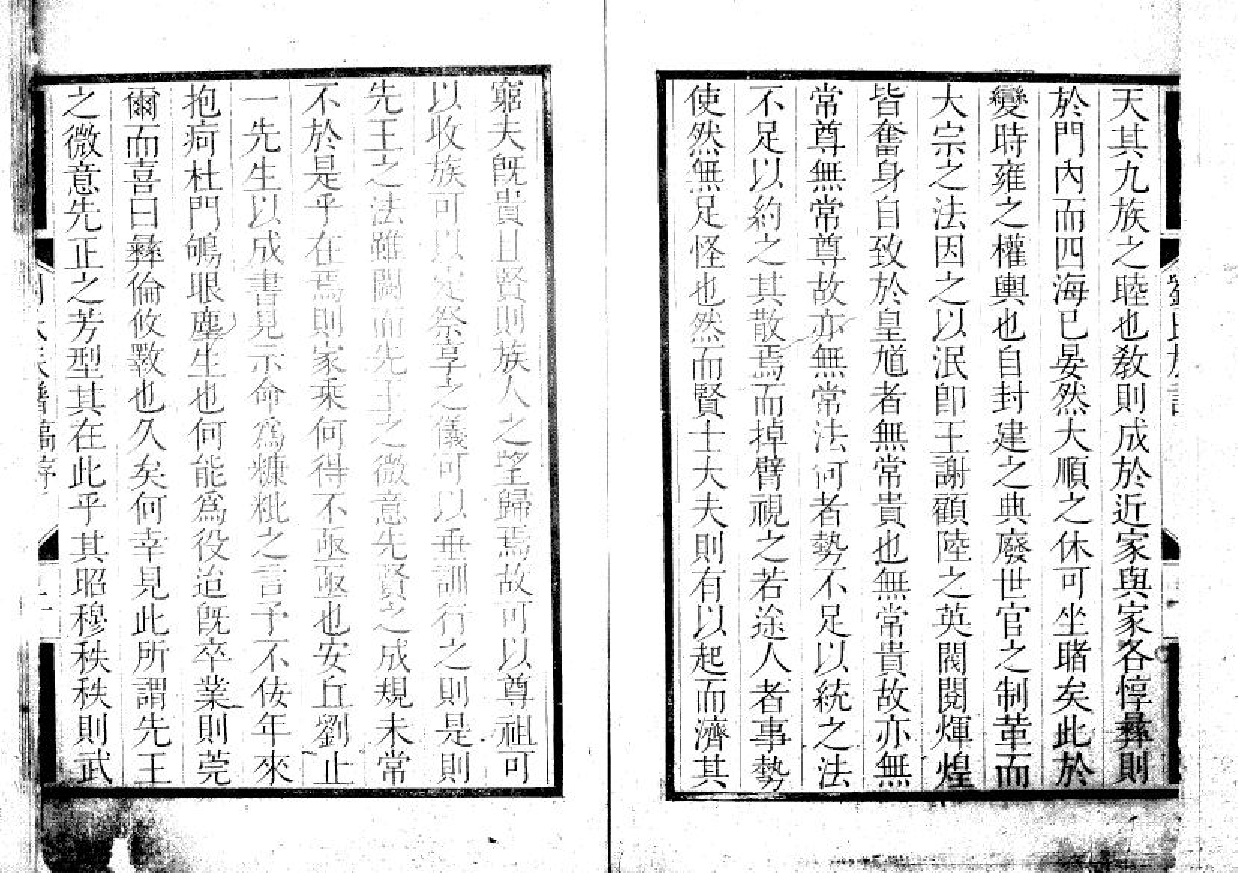 天其九族之睦也敎則成於近家與家各惇彝則
於門內而四海已晏然大順之休可坐睹矣此於
變時雍之權輿也自封建之典廢世官之制革而
大宗之法因之以泯卽王謝顧陸之英閥閱煇煌
皆奮身自致於皇馗者無常貴也無常貴故亦無
常尊無常尊故亦無常法何者勢不足以統之法
不足以約之其散焉而掉臂視之若途人者事勢
使然無足怪也然而賢士大夫則有以起而濟其
窮夫旣貴且賢則族人之望歸焉故可以尊祖可
以收族可以定祭享之儀可以垂訓行之則是則
先王之法雖闕而先王之微意先賢之成規未常
不於是乎在焉則家乘何得不亟亟也安丘劉止
一先生以成書見示命爲糠粃之言予不佞年來
抱疴杜門鴝眼塵生也何能爲役迨旣卒業則莞
爾而喜曰彝倫攸斁也久矣何幸見此所謂先王
之微意先正之芳型其在此乎其昭穆秩秩則武